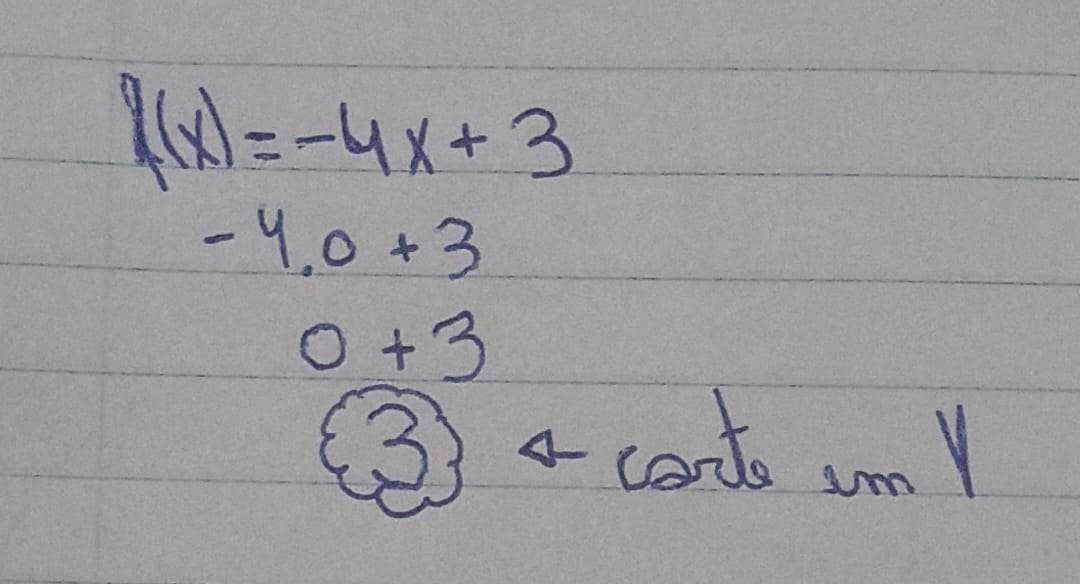 f(x) = -4x + 3
-4.0 + 3
0 + 3
3 ← corte em y